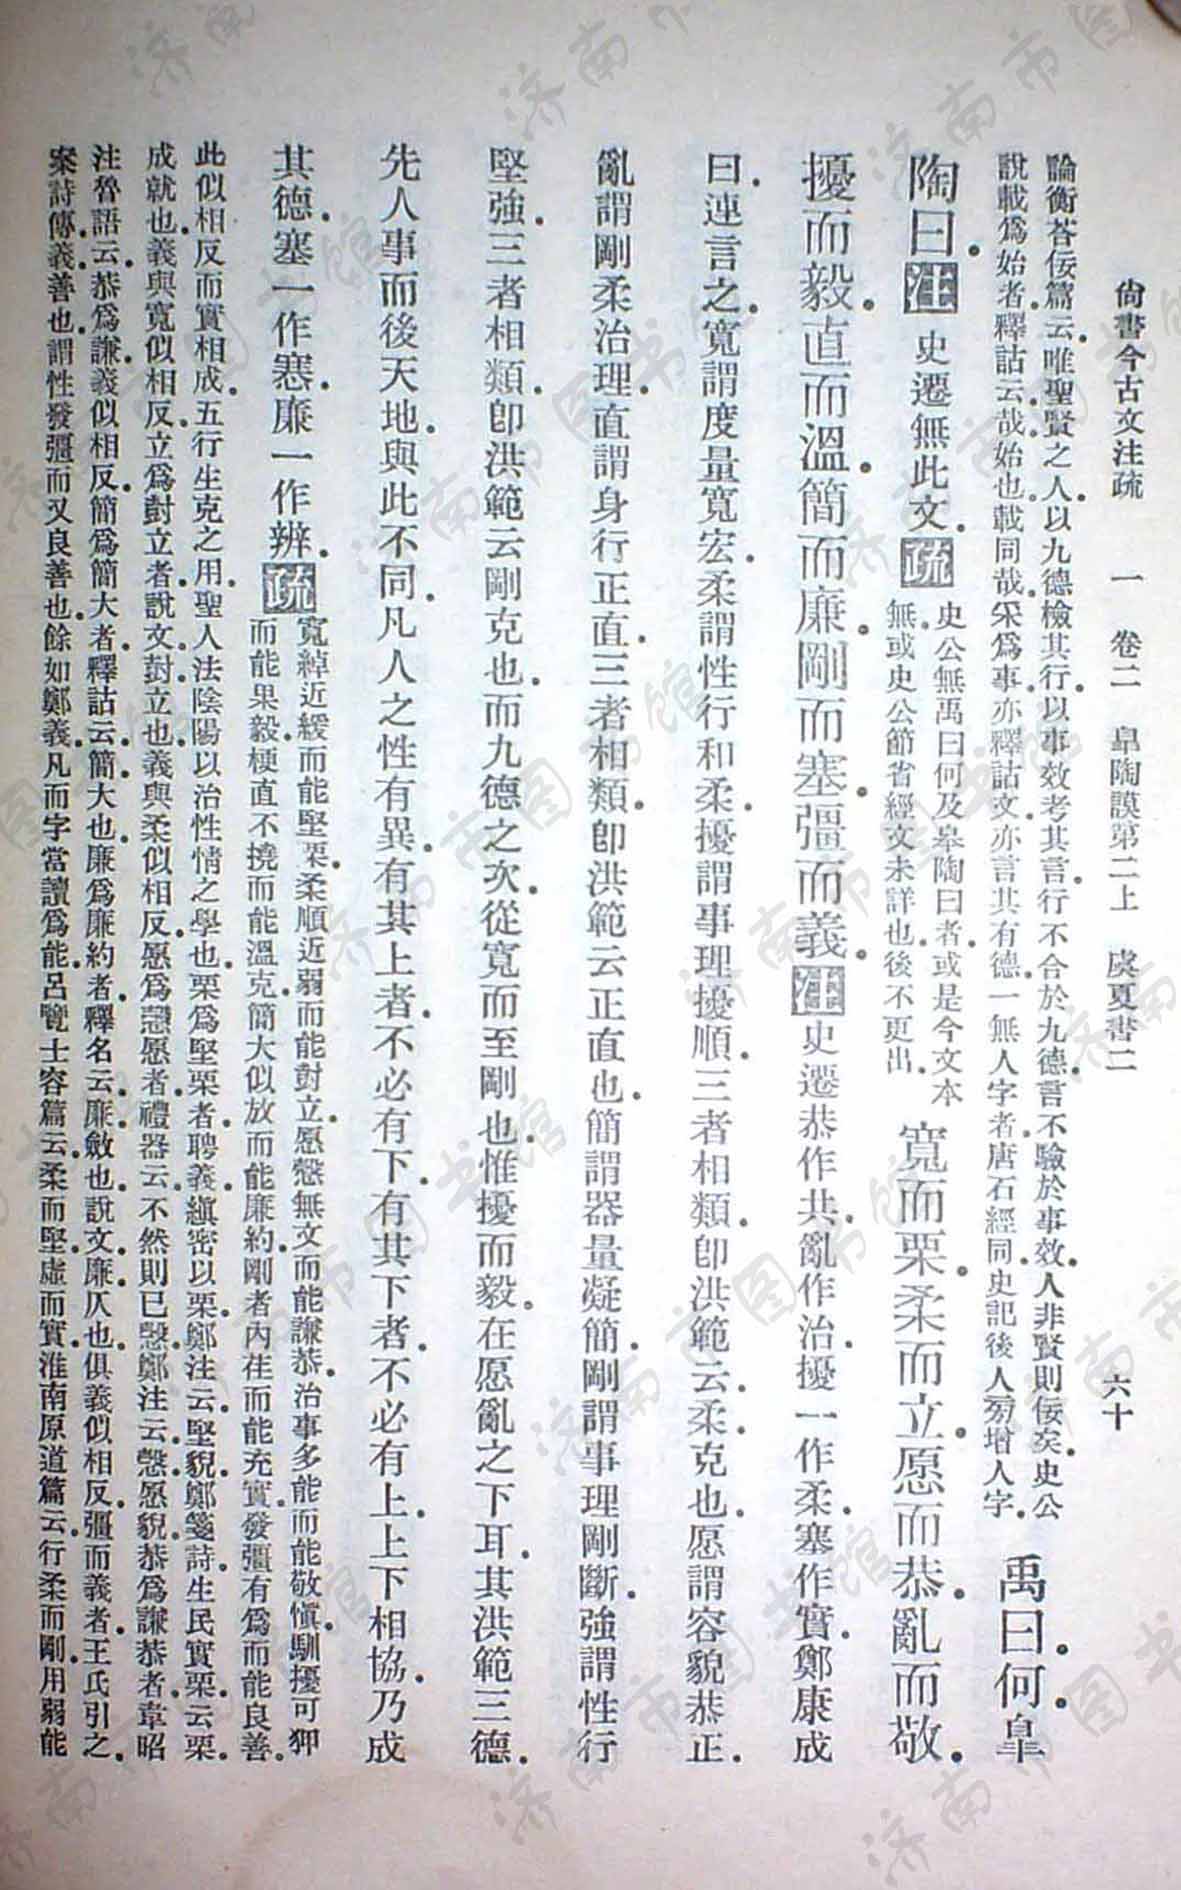 尙書今古文注疏　一　卷二　皐陶謨第二上　虞夏書二　六十
論衡荅佞篇云唯聖賢之人以九德檢其行以事效考其言行不合於九德言不驗於事效人非賢則佞矣史公
說載爲始者釋詁云哉始也載同哉采爲事亦釋詁文亦言其有德一無人字者唐石經同史記後人㫄增人字
禹曰何皐
陶曰注史遷無此文疏
史公無禹曰何及皋陶曰者或是今文本
無或史公節省經文未詳也後不更出
寬而栗柔而立愿而恭亂而敬
擾而毅直而溫簡而廉剛而塞彊而義注史遷恭作共亂作治擾一作柔塞作實鄭康成
曰連言之寬謂度量寬宏柔謂性行和柔擾謂事理擾順三者相類卽洪範云柔克也愿謂容貌恭正
亂謂剛柔治理直謂身行正直三者相類卽洪範云正直也簡謂器量凝簡剛謂事理剛斷強謂性行
堅強三者相類卽洪範云剛克也而九德之次從寬而至剛也惟擾而毅在愿亂之下耳其洪範三德
先人事而後天地與此不同凡人之性有異有其上者不必有下有其下者不必有上上下相協乃成
其德塞一作寋廉一作辨疏
寬綽近緩而能堅栗柔順近弱而能對立愿慤無文而能謙恭治事多能而能敬愼馴擾可狎
而能果毅梗直不撓而能溫克簡大似放而能廉約剛者內荏而能充實發彊有爲而能良善
此似相反而實相成五行生克之用聖人法陰陽以治性情之學也栗爲堅栗者聘義縝密以栗鄭注云堅貌鄭箋詩生民實栗云栗
成就也義與寬似相反立爲對立者說文對立也義與柔似相反愿爲愨愿者禮器云不然則已慤鄭注云慤愿貌恭爲謙恭者韋昭
注魯語云恭爲謙義似相反簡爲簡大者釋詁云簡大也廉爲廉約者釋名云廉斂也說文廉仄也俱義似相反彊而義者王氏引之
案詩傳義善也謂性發彊而又良善也餘如鄭義凡而字當讀爲能呂覽士容篇云柔而堅虛而實淮南原道篇云行柔而剛用弱能